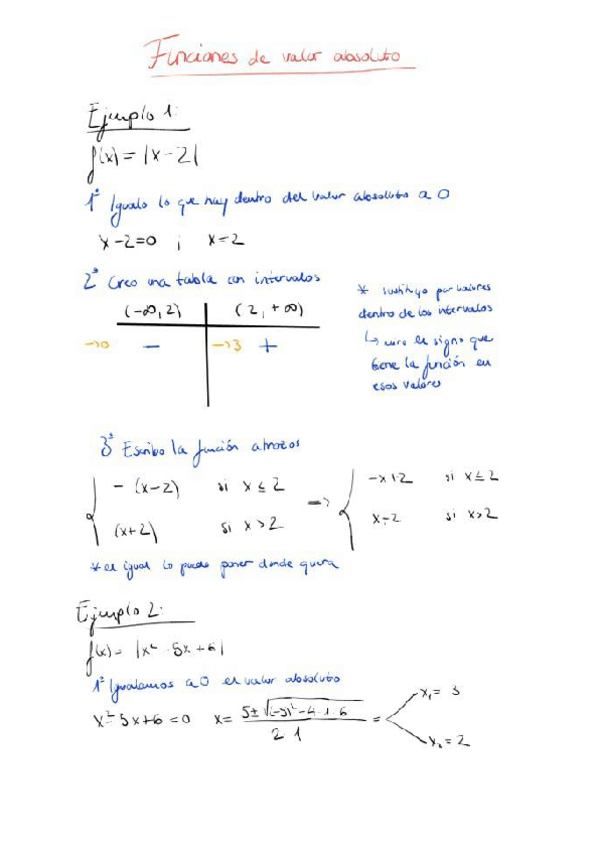 Funciones de valor absoluto
Ejemplo 1:
f(x) = |x-2|
1º Igualo lo que hay dentro del valor absoluto a 0
x-2=0 ; x=2
2º Creo una tabla con intervalos
(-∞,2) (2,+∞)
→0 - →3 +
* sustituyo por valores
dentro de los intervalos
↳ miro el signo que
tiene la función en
esos valores
3º Escribo la función a trozos
{ -(x-2) si x ≤ 2
(x+2) si x > 2
→ { -x+2 si x ≤ 2
x-2 si x > 2
* el igual lo puedo poner donde quiera
Ejemplo 2:
f(x) = |x² - 5x + 6|
1º Igualamos a 0 el valor absoluto
x² - 5x + 6 = 0 x = (5 ± √((-5)² - 4·1·6)) / (2·1) = x₁ = 3
x₂ = 2